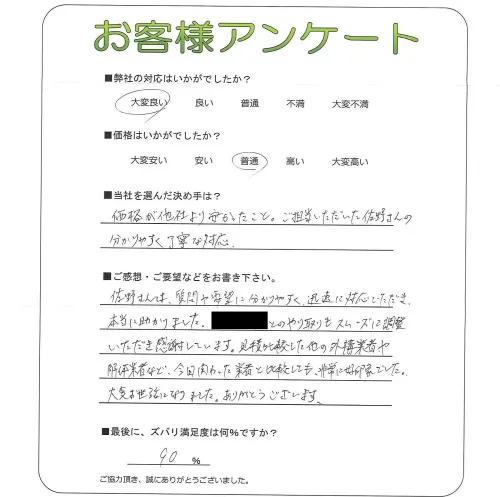 お客様アンケート
■弊社の対応はいかがでしたか？
大変良い 良い 普通 不満 大変不満
■価格はいかがでしたか？
大変安い 安い 普通 高い 大変高い
■当社を選んだ決め手は？
価格が他社より安かったこと。ご担当いただいた佐野さんの
分かりやすく丁寧な対応。
■ご感想・ご要望などをお書き下さい。
佐野さんは、質問や要望に分かりやすく、迅速に対応いただき、
本当に助かりました。 とのやり取りもスムーズに調整
いただき感謝しています。見積比較した他の外構業者や
解体業者など、今回関わった業者と比較しても、非常に好印象でした。
大変お世話になりました。ありがとうございます。
■最後に、ズバリ満足度は何%ですか？
90 %
ご協力頂き、誠にありがとうございました。